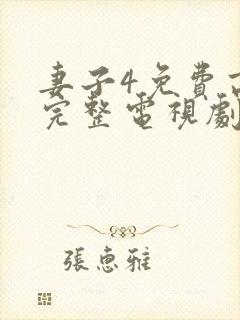 妻子4免費
完整電視劇
張惠雅